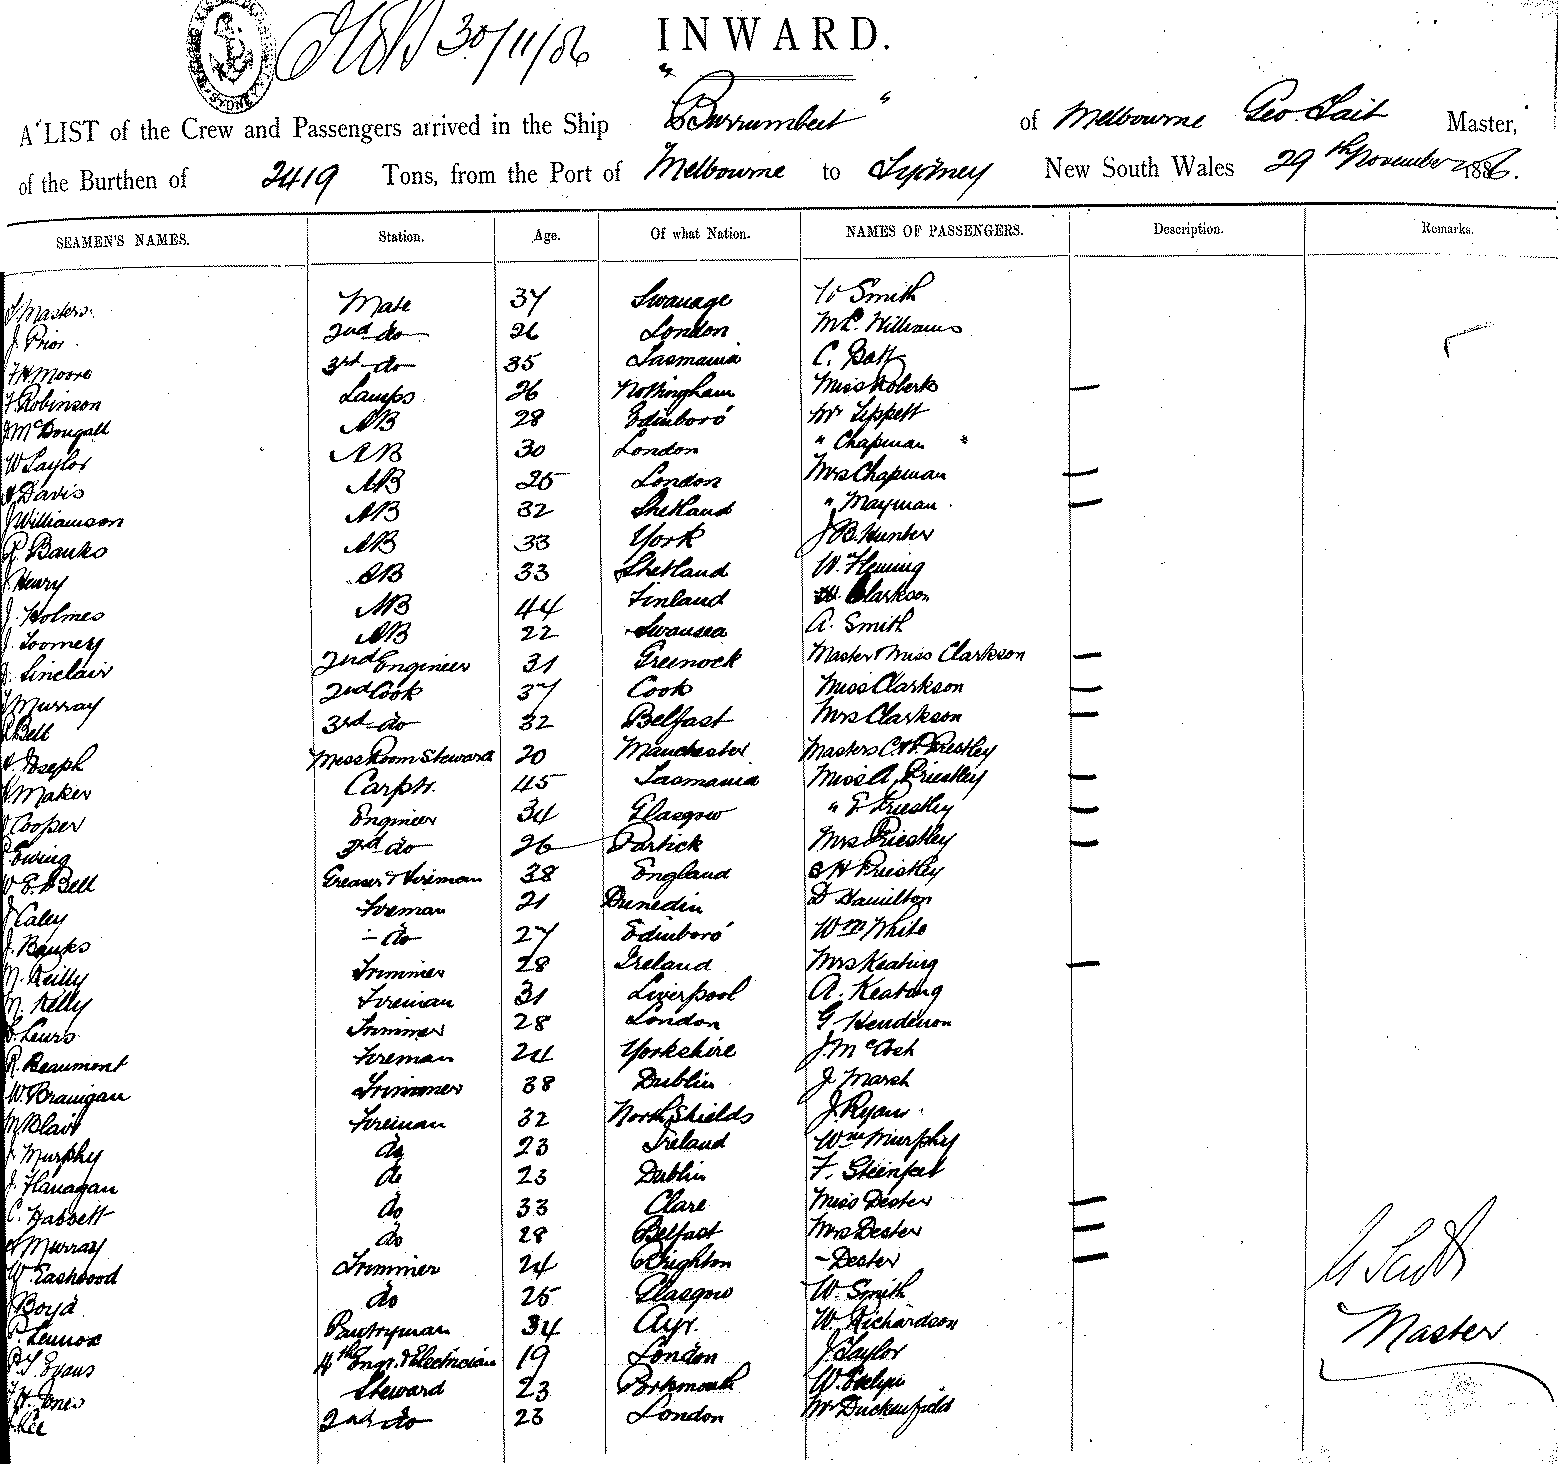 30/11/86
INWARD.
A LIST of the Crew and Passengers arrived in the Ship "Burrumbeet" of Melbourne Geo Tait Master,
of the Burthen of 2419 Tons, from the Port of Melbourne to Sydney New South Wales 29th November 1886.
SEAMEN'S NAMES. Station. Age. Of what Nation. NAMES OF PASSENGERS. Description. Remarks.
Masters Mate 37 Swanage W Smith
J. Prior 2nd do 26 London Williams
F H Moore 3rd do 35 Tasmania C. Batt
F Robinson Lamps 26 Nottingham Miss Roberts —
J McDougall AB 28 Edinboro' Mr Lippett
W Taylor AB 30 London " Chapman "
Davis AB 25 London Mrs Chapman —
J Williamson AB 32 Shetland " Mayman —
R. Banks AB 33 York J B Hunter
J Henry AB 33 Shetland W. Fleming
J. Holmes AB 44 Finland Clarkson
J. Toomey AB 22 Swansea A. Smith
Sinclair 2nd Engineer 31 Greenock Master & Miss Clarkson —
Murray 2nd Cook 37 Cook Miss Clarkson —
Bell 3rd do 32 Belfast Mrs Clarkson —
Joseph Mess Room Steward 20 Manchester Masters C & P. Priestley
Maker Carptr. 45 Tasmania Miss A. Priestley —
Cooper Engineer 34 Glasgow " E Priestley —
Ewing 3rd do 26 Partick Mrs Priestley —
W E Bell Greaser & Fireman 38 England H Priestley
J Caley Fireman 21 Dunedin D Hamilton
J. Banks - do 27 Edinboro' Wm White
M. Reilly Trimmer 28 Ireland Mrs Keating —
M. Kelly Fireman 31 Liverpool A. Keating
Trimmer 28 London G Henderson
R. Beaumont Fireman 24 Yorkshire J. McCosh
W. Branigan Trimmer 38 Dublin J. Marsh
M Blair Fireman 32 North Shields J. Ryan
J Murphy do 23 Ireland Wm Murphy
J. Flanagan do 23 Dublin F.
C. Hassett do 33 Clare Miss Dester —
Murray do 28 Belfast Mrs Dester —
W Eastwood Trimmer 24 Brighton - Dester —
J Boyd do 25 Glasgow W. Smith
Lennox Pantryman 34 Ayr. W. Richardson
Evans 4th Engr. & Electrician 19 London J Taylor
H. Jones Steward 23 Portsmouth W. Evelyn
Lee 2nd do 23 London Mr Duckenfield
Master